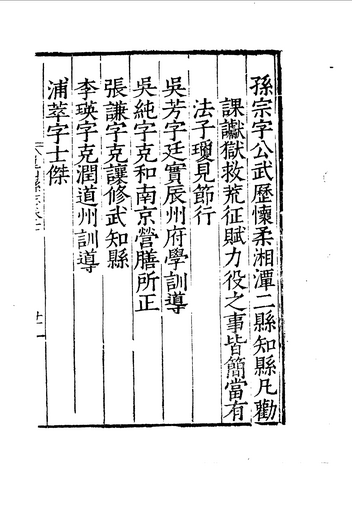 孫宗字公武歷懷柔湘潭二縣知縣凡勸
課讞獄救荒征賦力役之事皆簡當有
法子瓊見節行
吳芳字廷實辰州府學訓導
吳純字克和南京營膳所正
張謙字克讓修武知縣
李瑛字克潤道州訓導
浦萃字士傑